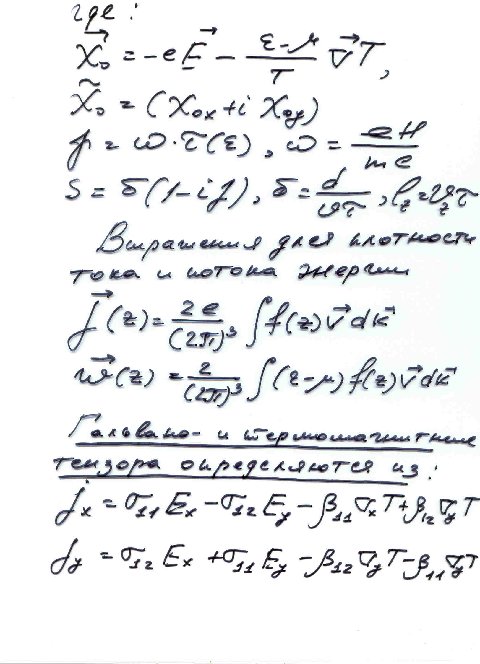 где:
χ⃗₀ = -eE⃗ - (ε-μ)/T ∇⃗T,
χ̃₀ = (χ₀ₓ + i χ₀y)
γ = ω·τ(ε), ω = eH/mc
S = δ(1-iγ), δ = d/ϑτ, l_z = ϑ_zτ
Выражения для плотности
тока и потока энергии
j⃗(z) = 2e/(2π)³ ∫f(z) v⃗ dk⃗
w⃗(z) = 2/(2π)³ ∫(ε-μ) f(z) v⃗ dk⃗
Гальвано- и термомагнитные
тензора определяются из:
jₓ = σ₁₁Eₓ - σ₁₂E_y - β₁₁∇ₓT + β₁₂∇_yT
j_y = σ₁₂Eₓ + σ₁₁E_y - β₁₂∇_yT - β₁₁∇_yT